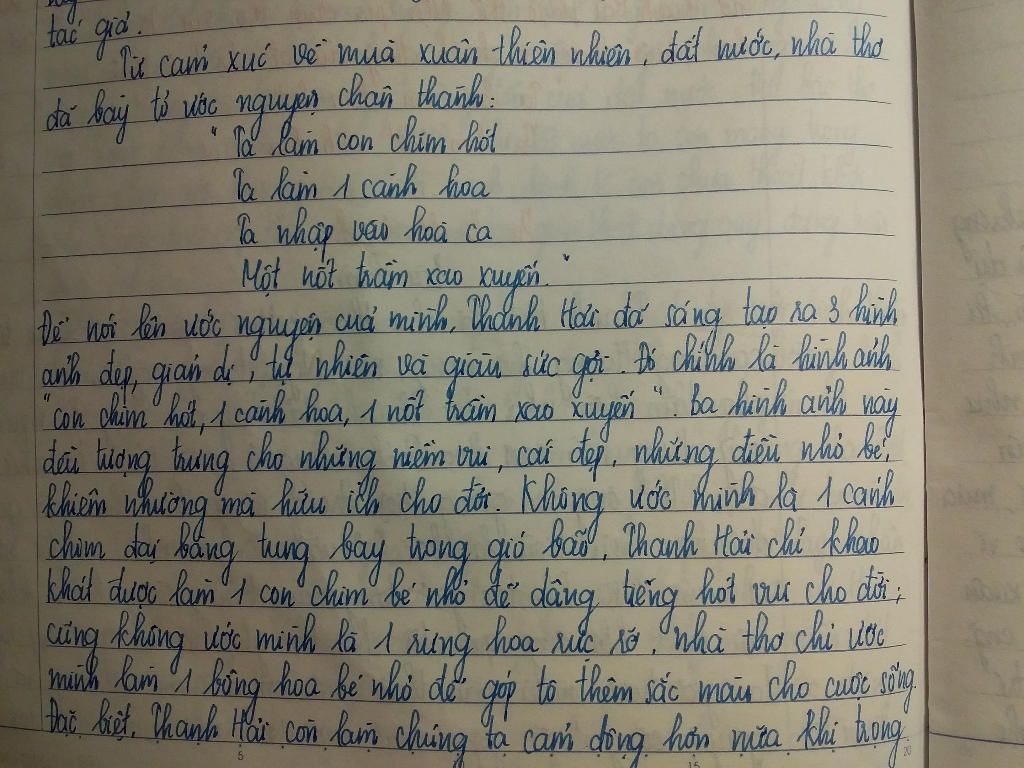 tác giả.
Từ cảm xúc về mùa xuân thiên nhiên, đất nước, nhà thơ
đã bày tỏ ước nguyện chân thành:
"Ta làm con chim hót
Ta làm 1 cành hoa
Ta nhập vào hoà ca
Một nốt trầm xao xuyến."
Để nói lên ước nguyện của mình, Thanh Hải đã sáng tạo ra 3 hình
ảnh đẹp, giản dị, tự nhiên và giàu sức gợi. Đó chính là hình ảnh
"con chim hót, 1 cành hoa, 1 nốt trầm xao xuyến". Ba hình ảnh này
đều tượng trưng cho những niềm vui, cái đẹp, những điều nhỏ bé,
khiêm nhường mà hữu ích cho đời. Không ước mình là 1 cánh
chim đại bàng tung bay trong gió bão, Thanh Hải chỉ khao
khát được làm 1 con chim bé nhỏ để dâng tiếng hót vui cho đời;
cũng không ước mình là 1 rừng hoa rực rỡ, nhà thơ chỉ ước
mình làm 1 bông hoa bé nhỏ để góp tô thêm sắc màu cho cuộc sống.
Đặc biệt, Thanh Hải còn làm chúng ta cảm động hơn nữa khi trong
5 15 20